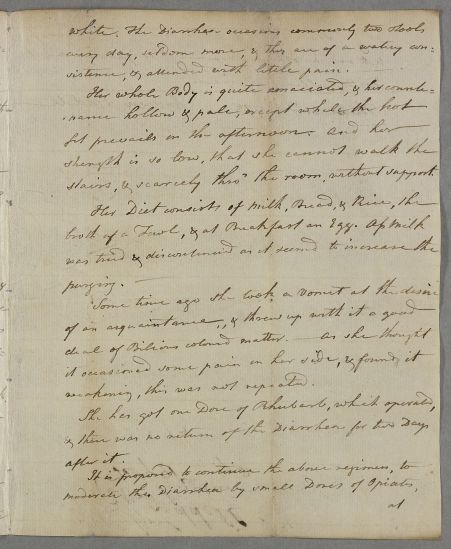 white. The Diarrhœa occasions commonly two stools
every day, seldom more, & they are of a watery con-
sistence, & attended with little pain. —
Her whole Body is quite emaciated, & her counte-
-nance hollow & pale, except while the hot
fit prevails in the afternoon. And her
strength is so low, that she cannot walk the
stairs, & scarcely thro' the room, without support.
Her Diet consists of Milk, Bread, & Rice, the
broth of a Fowl, & at Breakfast an Egg. Ass Milk
was tried & discontinued as it seemed to increase the
purging. —
Some time ago she took a Vomit at the desire
of an acquaintance, & threw up with it a good
deal of Bilious coloured matter. — As she thought
it occasioned some pain in her side, & found it
weakening, this was not repeated.
She has got one Dose of Rhubarb, which operated,
& there was no return of the Diarrhœa for two Days
after it.
It is proposed to continue the above regimen, to
moderate the Diarrhœa by small Doses of Opiats,
at